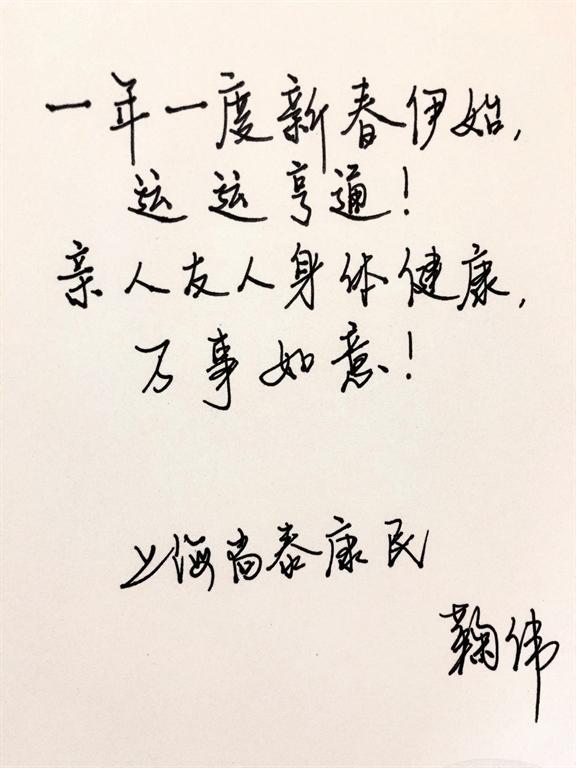 一年一度新春伊始，
运运亨通！
亲人友人身体健康，
万事如意！
上海尚泰康民
鞠伟